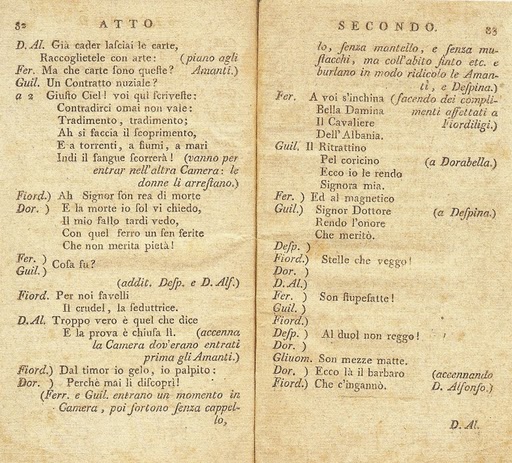 82 ATTO
D. Al. Già cader lasciai le carte,
Raccoglietele con arte: (piano agli
Fer. Ma che carte sono queste? Amanti.)
Guil. Un Contratto nuziale?
a 2 Giusto Ciel! voi quì scriveste:
Contradirci omai non vale:
Tradimento, tradimento;
Ah si faccia il scoprimento,
E a torrenti, a fiumi, a mari
Indi il sangue scorrerà! (vanno per
entrar nell'altra Camera: le
donne li arrestano.)
Fiord.) Ah Signor son rea di morte
Dor. ) E la morte io sol vi chiedo,
Il mio fallo tardi vedo,
Con quel ferro un sen ferite
Che non merita pietà!
Fer. )
Cosa fu?
Guil.)
(addit. Desp. e D. Alf.)
Fiord. Per noi favelli
Il crudel, la seduttrice.
D. Al. Troppo vero è quel che dice
E la prova è chiusa lì. (accenna
la Camera dov'erano entrati
prima gli Amanti.)
Fiord.) Dal timor io gelo, io palpito:
Dor. ) Perchè mai li discoprì!
(Ferr. e Guil. entrano un momento in
Camera, poi sortono senza cappel-
lo,
SECONDO. 83
lo, senza mantello, e senza mu-
stacchi, ma coll'abito finto etc. e
burlano in modo ridicolo le Aman-
ti, e Despina.)
Fer. A voi s'inchina (facendo dei compli-
Bella Damina menti affettati a
Il Cavaliere Fiordiligi.)
Dell'Albania.
Guil. Il Ritrattino
Pel coricino (a Dorabella.)
Ecco io le rendo
Signora mia.
Fer. ) Ed al magnetico
Guil.) Signor Dottore (a Despina.)
Rendo l'onore
Che meritò.
Desp. )
Fiord.) Stelle che veggo!
Dor. )
D. Al.)
Fer. ) Son stupefatte!
Guil. )
Fiord.)
Desp. ) Al duol non reggo!
Dor. )
Gliuom. Son mezze matte.
Dor. ) Ecco là il barbaro (accennando
Fiord.) Che c'ingannò. D. Alfonso.)
D. Al.